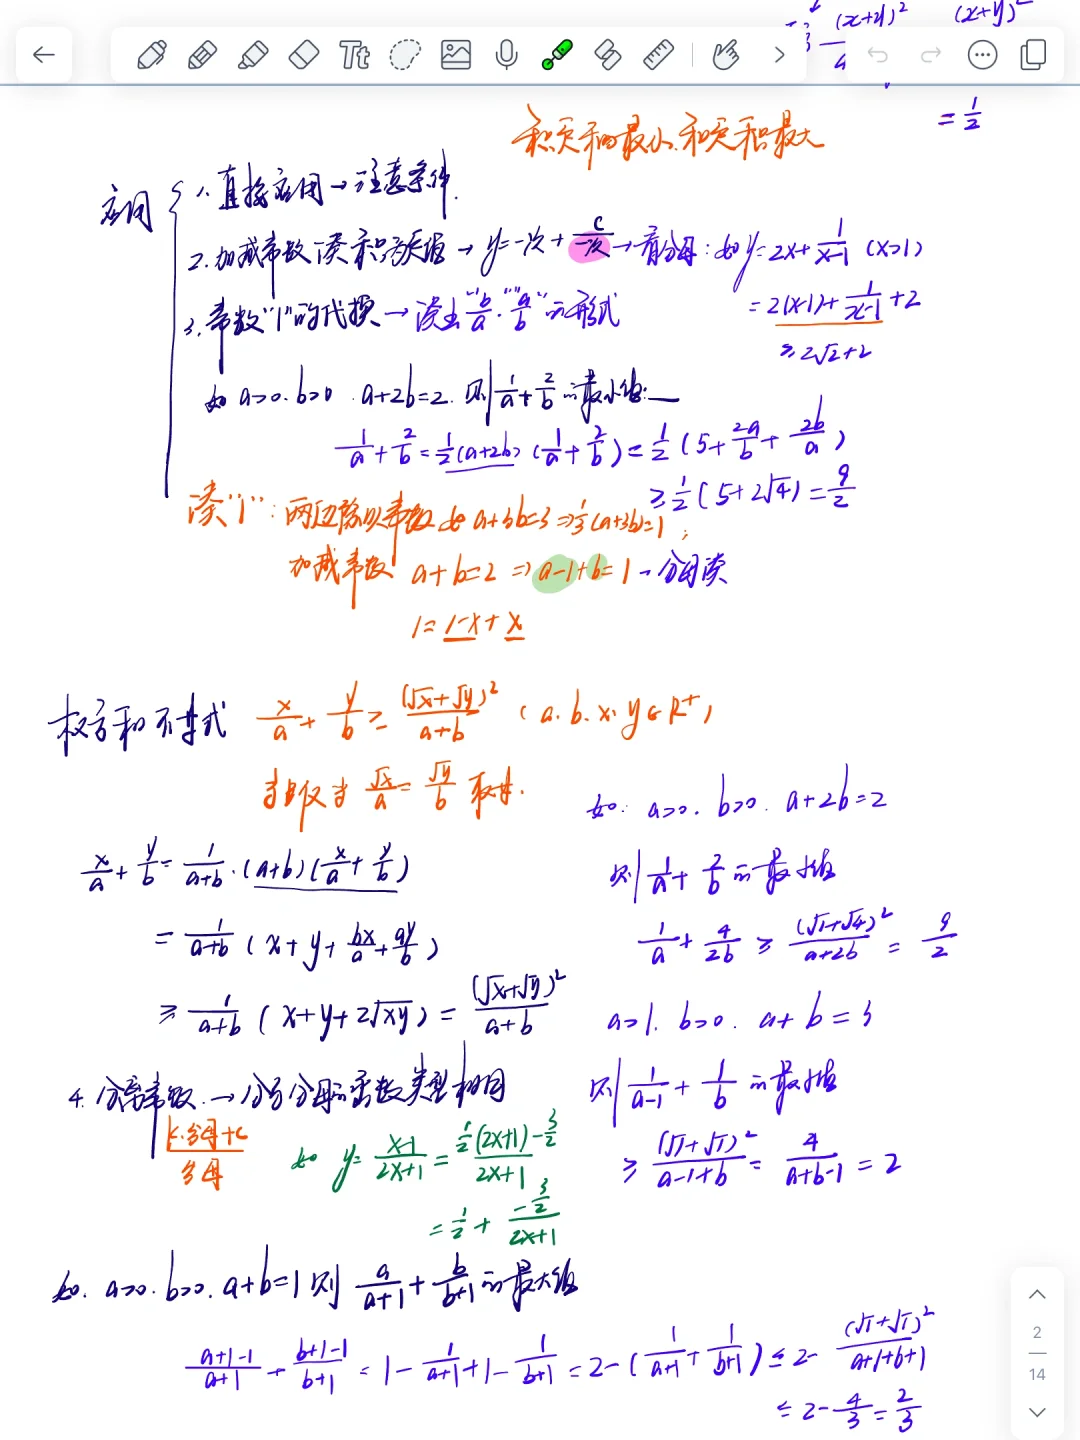 (x+y)² (x+y)²
= 1/2
Tt
积定和最小.和定积最大
应用
1. 直接应用→注意条件.
2. 加减常数 凑积为定值 → y=一次+c/一次→看分母:如y=2x+1/(x-1) (x>1)
=2(x-1)+1/(x-1)+2
≥2√2+2
3. 常数"1"的代换→凑出"b/a"."a/b"的形式
如 a>0.b>0 .a+2b=2.则1/a+2/b的最小值:
1/a+2/b=1/2(a+2b)(1/a+2/b)=1/2(5+2a/b+2b/a)
≥1/2(5+2√4)=9/2
凑"1":两边除以常数 如 a+3b=3⇒1/3(a+3b)=1;
加减常数 a+b=2 ⇒a-1+b=1→分母凑
1=1-x+x
权方和不等式 x/a+y/b≥(√x+√y)²/(a+b) (a.b.x.y∈R⁺)
当且仅当 √x/a=√y/b 取等.
如: a>0. b>0. a+2b=2
则 1/a+2/b的最小值
1/a+4/2b≥(√1+√4)²/(a+2b)=9/2
x/a+y/b=1/(a+b)·(a+b)(x/a+y/b)
=1/(a+b)(x+y+bx/a+ay/b)
≥1/(a+b)(x+y+2√xy)=(√x+√y)²/(a+b)
a>1. b>0. a+b=3
则 1/(a-1)+1/b的最小值
≥(√1+√1)²/(a-1+b)=4/(a+b-1)=2
4. 分离常数.→分子分母的函数类型相同
(k·分母+c)/分母
如 y=(x-1)/(2x+1)=(1/2(2x+1)-3/2)/(2x+1)
=1/2+(-3/2)/(2x+1)
如. a>0.b>0.a+b=1则 a/(a+1)+b/(b+1)的最大值
(a+1-1)/(a+1)+(b+1-1)/(b+1)=1-1/(a+1)+1-1/(b+1)=2-(1/(a+1)+1/(b+1))≤2-(√1+√1)²/(a+1+b+1)
≤2-4/3=2/3
2
14